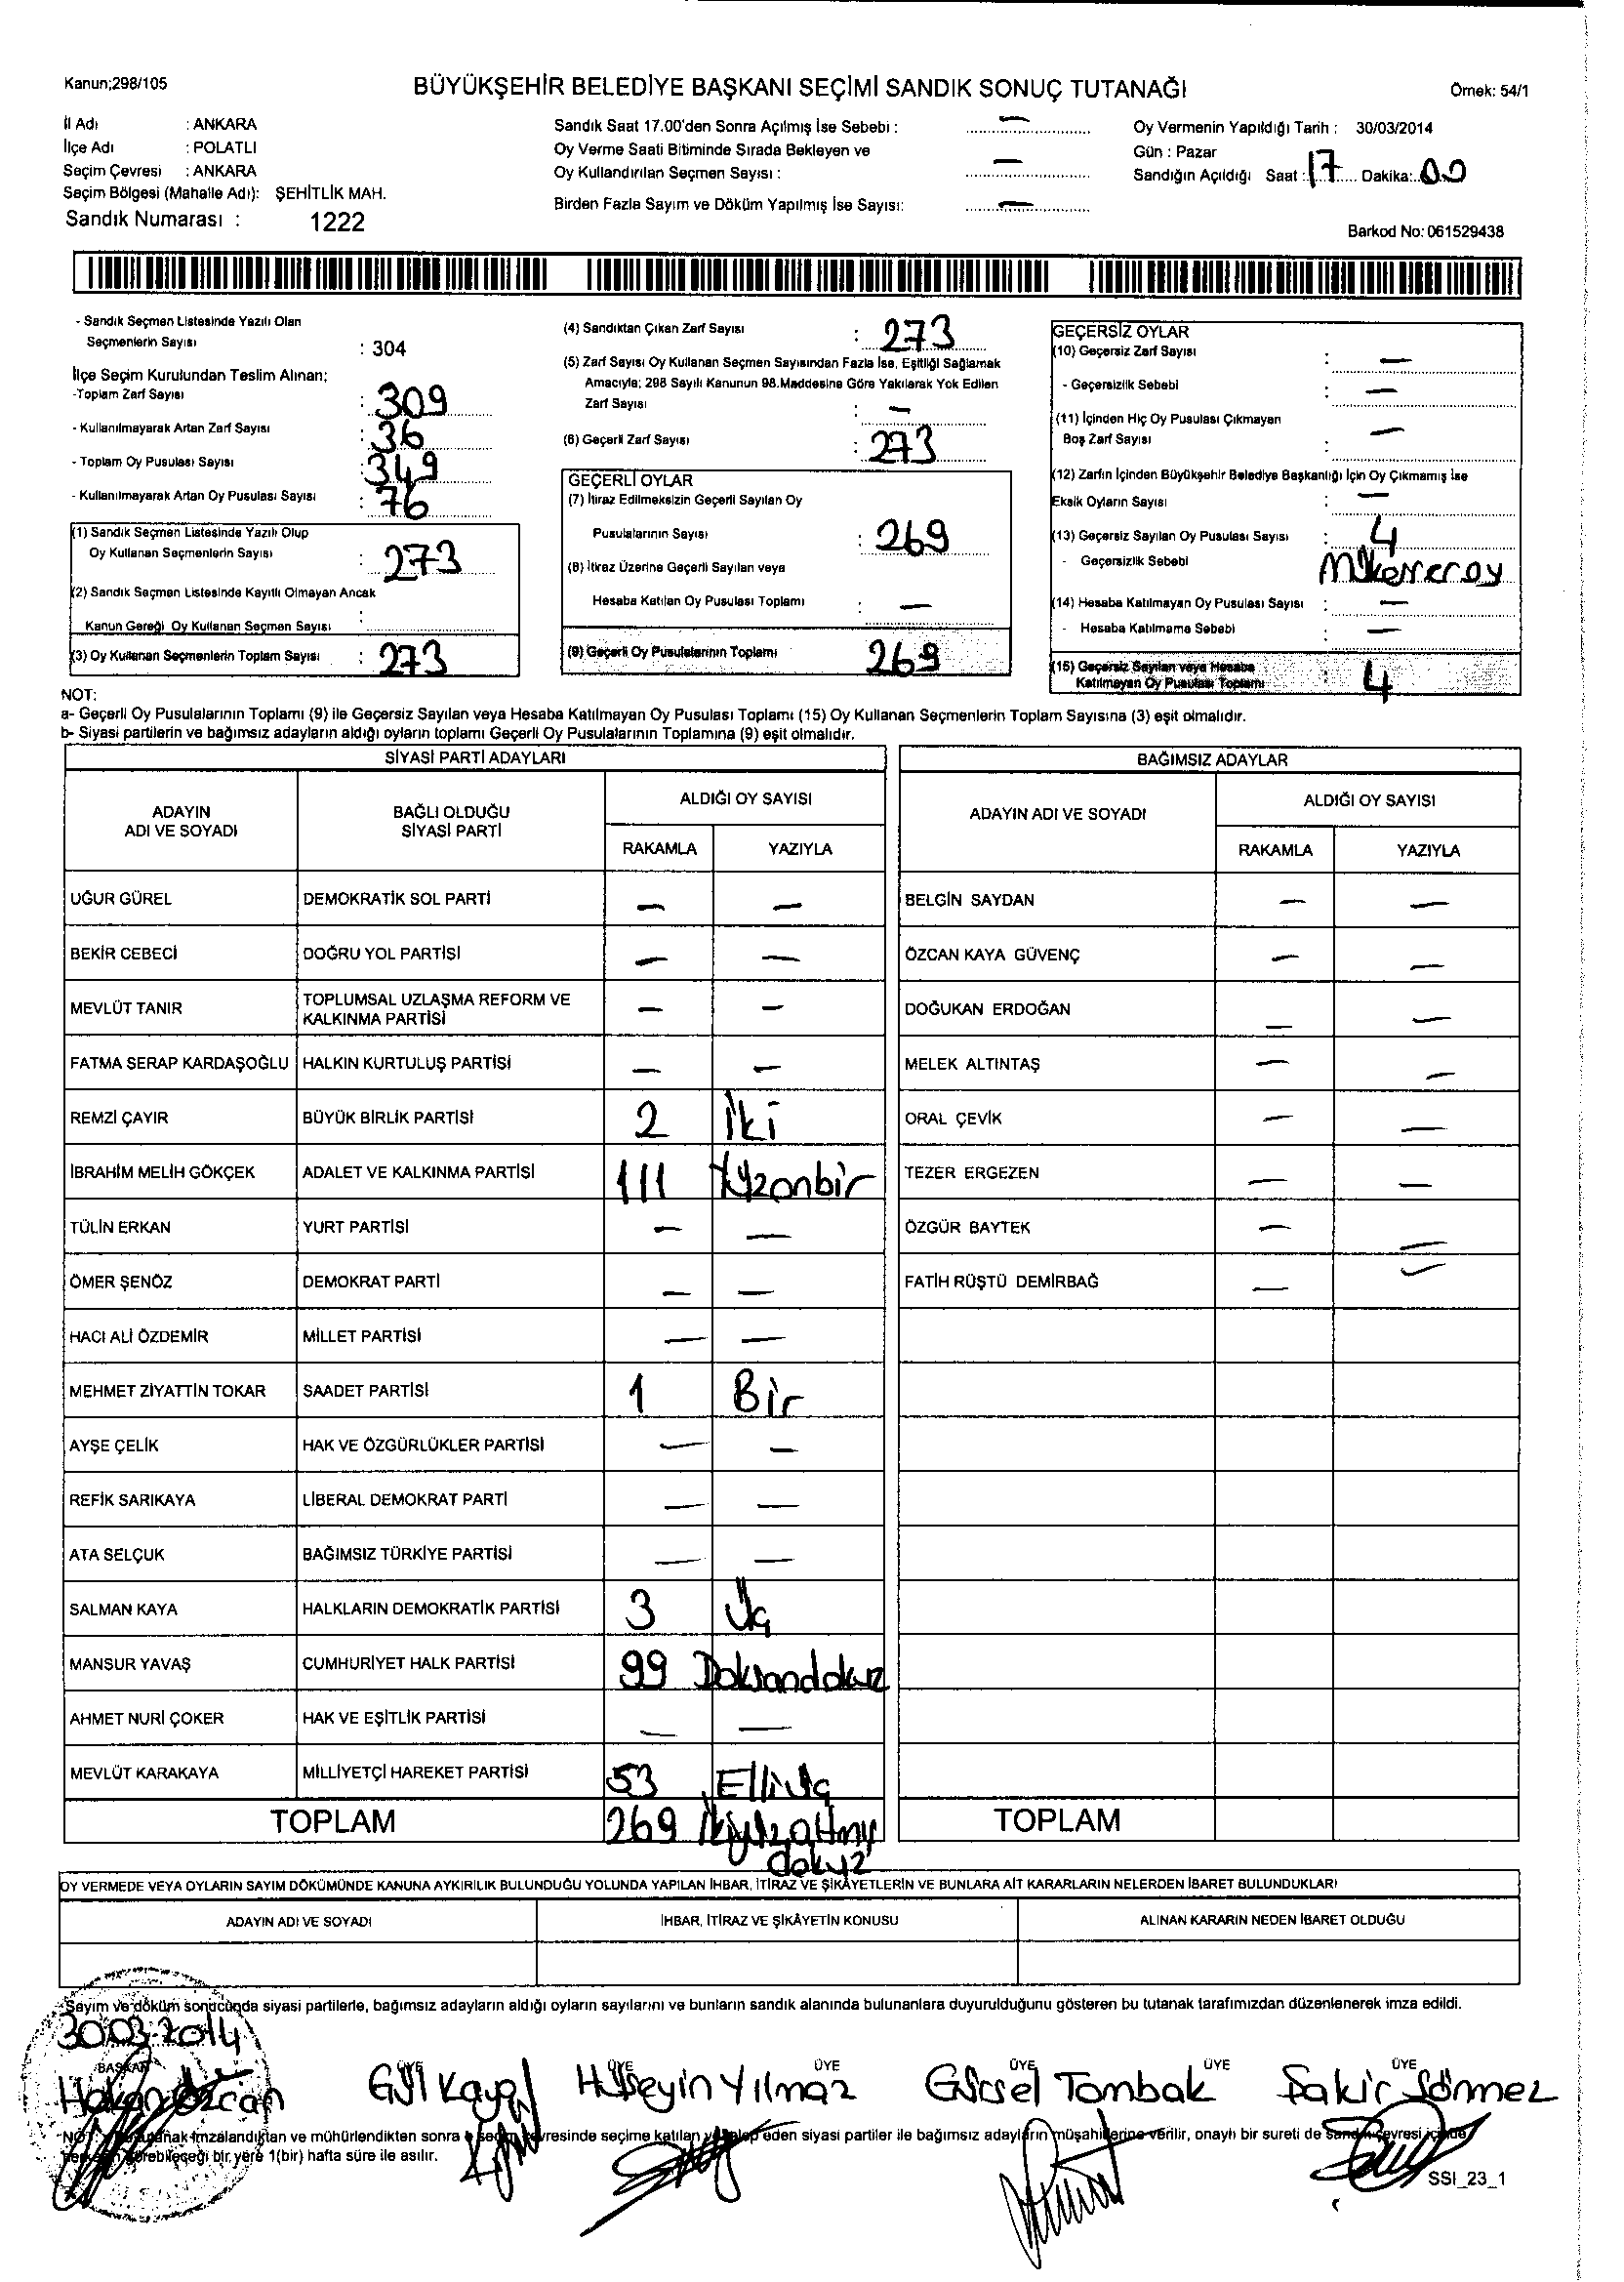 Kanun;298/105
BÜYÜKŞEHİR BELEDİYE BAŞKANI SEÇİMİ SANDIK SONUÇ TUTANAĞI
Örnek: 54/1
İl Adı : ANKARA
İlçe Adı : POLATLI
Seçim Çevresi : ANKARA
Seçim Bölgesi (Mahalle Adı): ŞEHİTLİK MAH.
Sandık Numarası : 1222
Sandık Saat 17.00'den Sonra Açılmış İse Sebebi : —
Oy Verme Saati Bitiminde Sırada Bekleyen ve
Oy Kullandırılan Seçmen Sayısı : —
Birden Fazla Sayım ve Döküm Yapılmış İse Sayısı: —
Oy Vermenin Yapıldığı Tarih : 30/03/2014
Gün : Pazar
Sandığın Açıldığı Saat : 17 Dakika: 00
Barkod No: 061529438
- Sandık Seçmen Listesinde Yazılı Olan
Seçmenlerin Sayısı : 304
İlçe Seçim Kurulundan Teslim Alınan;
-Toplam Zarf Sayısı : 309
- Kullanılmayarak Artan Zarf Sayısı : 36
- Toplam Oy Pusulası Sayısı : 349
- Kullanılmayarak Artan Oy Pusulası Sayısı : 76
(1) Sandık Seçmen Listesinde Yazılı Olup
Oy Kullanan Seçmenlerin Sayısı : 273
(2) Sandık Seçmen Listesinde Kayıtlı Olmayan Ancak
Kanun Gereği Oy Kullanan Seçmen Sayısı :
(3) Oy Kullanan Seçmenlerin Toplam Sayısı : 273
(4) Sandıktan Çıkan Zarf Sayısı : 273
(5) Zarf Sayısı Oy Kullanan Seçmen Sayısından Fazla İse, Eşitliği Sağlamak
Amacıyla; 298 Sayılı Kanunun 98.Maddesine Göre Yakılarak Yok Edilen
Zarf Sayısı : —
(6) Geçerli Zarf Sayısı : 273
GEÇERLİ OYLAR
(7) İtiraz Edilmeksizin Geçerli Sayılan Oy
Pusulalarının Sayısı : 269
(8) İtiraz Üzerine Geçerli Sayılan veya
Hesaba Katılan Oy Pusulası Toplamı : —
(9) Geçerli Oy Pusulalarının Toplamı 269
GEÇERSİZ OYLAR
(10) Geçersiz Zarf Sayısı : —
- Geçersizlik Sebebi : —
(11) İçinden Hiç Oy Pusulası Çıkmayan
Boş Zarf Sayısı : —
(12) Zarfın İçinden Büyükşehir Belediye Başkanlığı İçin Oy Çıkmamış İse
Eksik Oyların Sayısı : —
(13) Geçersiz Sayılan Oy Pusulası Sayısı : 4
- Geçersizlik Sebebi Mükerrer oy
(14) Hesaba Katılmayan Oy Pusulası Sayısı : —
- Hesaba Katılmama Sebebi : —
(15) Geçersiz Sayılan veya Hesaba
Katılmayan Oy Pusulası Toplamı : 4
NOT:
a- Geçerli Oy Pusulalarının Toplamı (9) ile Geçersiz Sayılan veya Hesaba Katılmayan Oy Pusulası Toplamı (15) Oy Kullanan Seçmenlerin Toplam Sayısına (3) eşit olmalıdır.
b- Siyasi partilerin ve bağımsız adayların aldığı oyların toplamı Geçerli Oy Pusulalarının Toplamına (9) eşit olmalıdır.
SİYASİ PARTİ ADAYLARI
ADAYIN ADI VE SOYADI BAĞLI OLDUĞU SİYASİ PARTİ ALDIĞI OY SAYISI
RAKAMLA YAZIYLA
UĞUR GÜREL DEMOKRATİK SOL PARTİ — —
BEKİR CEBECİ DOĞRU YOL PARTİSİ — —
MEVLÜT TANIR TOPLUMSAL UZLAŞMA REFORM VE KALKINMA PARTİSİ — —
FATMA SERAP KARDAŞOĞLU HALKIN KURTULUŞ PARTİSİ — —
REMZİ ÇAYIR BÜYÜK BİRLİK PARTİSİ 2 İki
İBRAHİM MELİH GÖKÇEK ADALET VE KALKINMA PARTİSİ 111 Yüzonbir
TÜLİN ERKAN YURT PARTİSİ — —
ÖMER ŞENÖZ DEMOKRAT PARTİ — —
HACI ALİ ÖZDEMİR MİLLET PARTİSİ — —
MEHMET ZİYATTİN TOKAR SAADET PARTİSİ 1 Bir
AYŞE ÇELİK HAK VE ÖZGÜRLÜKLER PARTİSİ — —
REFİK SARIKAYA LİBERAL DEMOKRAT PARTİ — —
ATA SELÇUK BAĞIMSIZ TÜRKİYE PARTİSİ — —
SALMAN KAYA HALKLARIN DEMOKRATİK PARTİSİ 3 Üç
MANSUR YAVAŞ CUMHURİYET HALK PARTİSİ 99 Doksandokuz
AHMET NURİ ÇOKER HAK VE EŞİTLİK PARTİSİ — —
MEVLÜT KARAKAYA MİLLİYETÇİ HAREKET PARTİSİ 53 Elliüç
TOPLAM 269 İkiyüzaltmış
dokuz
BAĞIMSIZ ADAYLAR
ADAYIN ADI VE SOYADI ALDIĞI OY SAYISI
RAKAMLA YAZIYLA
BELGİN SAYDAN — —
ÖZCAN KAYA GÜVENÇ — —
DOĞUKAN ERDOĞAN — —
MELEK ALTINTAŞ — —
ORAL ÇEVİK — —
TEZER ERGEZEN — —
ÖZGÜR BAYTEK — —
FATİH RÜŞTÜ DEMİRBAĞ — —
TOPLAM
OY VERMEDE VEYA OYLARIN SAYIM DÖKÜMÜNDE KANUNA AYKIRILIK BULUNDUĞU YOLUNDA YAPILAN İHBAR, İTİRAZ VE ŞİKÂYETLERİN VE BUNLARA AİT KARARLARIN NELERDEN İBARET BULUNDUKLARI
ADAYIN ADI VE SOYADI İHBAR, İTİRAZ VE ŞİKÂYETİN KONUSU ALINAN KARARIN NEDEN İBARET OLDUĞU
Sayım ve döküm sonucunda siyasi partilerle, bağımsız adayların aldığı oyların sayılarını ve bunların sandık alanında bulunanlara duyurulduğunu gösteren bu tutanak tarafımızdan düzenlenerek imza edildi.
30.03.2014
BAŞKAN ÜYE ÜYE ÜYE ÜYE ÜYE ÜYE
Hakan Özcan Gül Kaya Hüseyin Yılmaz Gürsel Tombak Şakir Sönmez
NOT: tutanak imzalandıktan ve mühürlendikten sonra seçim çevresinde seçime katılan ve talep eden siyasi partiler ile bağımsız adayların müşahitlerine verilir, onaylı bir sureti de sandık çevresi içinde
görebileceği bir yere 1(bir) hafta süre ile asılır.
SSI_23_1